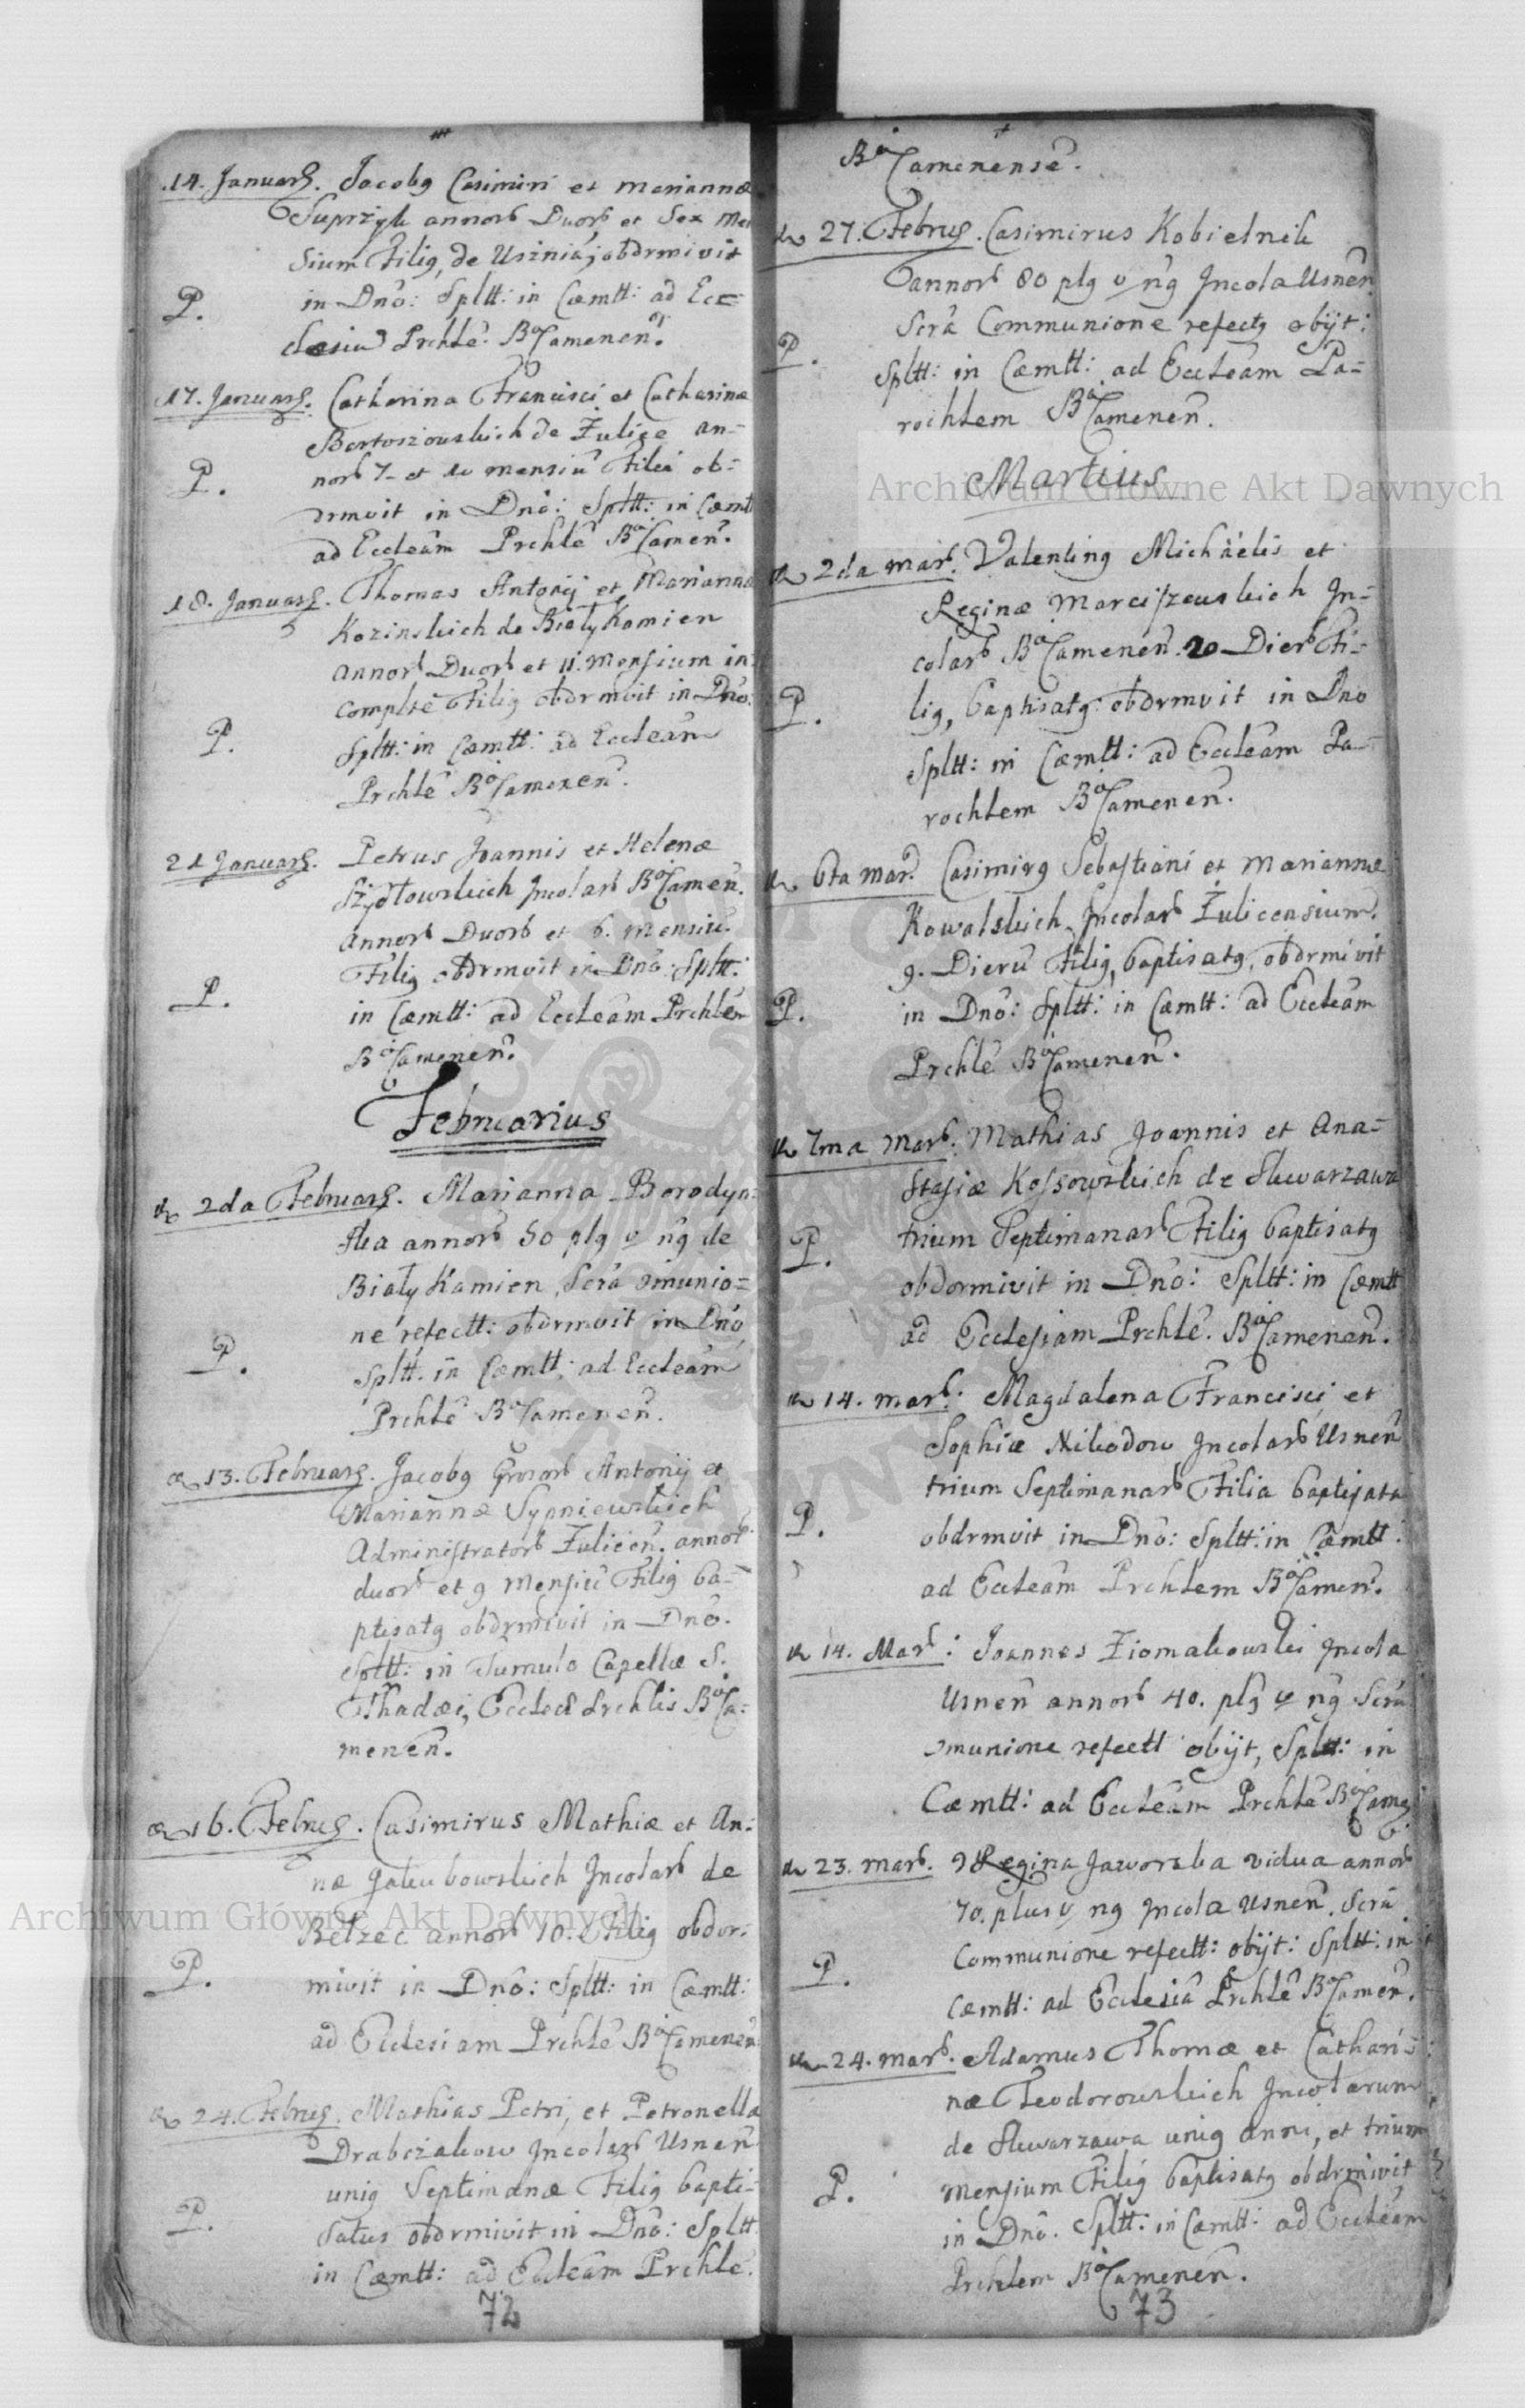 14. Januarꝯ. Jacobꝯ Casimiri et Mariannæ
Suprzyk annorꝫ Duorꝫ et Sex Men
sium Filiꝯ, de Uszniá, obdrmivit
P. in Dnō: Spltt: in Cæmtt: ad Ecc=
clesiū Prchlē. BaCamenen̄.
17. Januarꝯ. Catharina Francisci et Catharinæ
Bartosiowskich de Żulice an=
P. norꝫ 7. et 10 mensiū Filia ob=
drmvit in Dnō: Spltt: in Cæmt
ad Eccleām Prchlē BaCamen̄.
18. Januarꝯ. Thomas Antonij et Marianna
Kozinskich de BiałyKamien
annorꝫ Duorꝫ et 11. Mensium in
complte Filiꝯ obdrmvit in Dnō:
P. Spltt: in Cæmtt: ad Eccleam
Prchlē BaCamenen̄.
21 Januarꝯ. Petrus Joannis et Helenæ
Szydłowskich Incolarꝫ BaCamen̄.
annorꝫ Duorꝫ et 6. mensiū.
Filiꝯ obdrmvit in Dnō: Spltt:
P. in Cæmtt: ad Eccleam Prchlem
BaCamenen̄.
Februarius
2da Februarꝯ. Marianna Borodyn=
ska annorꝫ 50 plꝯ v nꝯ de
Biały Kamien, Scrā ↄmunio=
ne refectt: obdrmvit in Dnō
P. Spltt. in Cæmtt: ad Eccleam
Prchlē BaCamenen̄.
13. Februarꝯ. Jacobꝯ Grosorꝫ Antonij et
Mariannæ Sypniewskich
Administratorꝫ Żulicen̄. annorꝫ
duorꝫ et 9 Mensiū Filiꝯ ba=
ptisatꝯ obdrmivit in Dnō.
Spltt: in Tumulo Capellæ S.
Thadæi, Prchlis BaCa=
menen̄.
16. Februꝯ. Casimirus Mathiæ et An=
næ Incolarꝫ de
Bełzec annorꝫ 10. Filiꝯ obdor=
P. mivit in Dnō: Spltt: in Cæmtt:
ad Ecclesiam Prchlē BaCamenen
24. Februꝯ. Mathias Petri, et Petronella
Drabczakow Incolarꝫ Usnen̄
uniꝯ Septimanæ Filiꝯ bapti=
P. satus obdrmivit in Dnō: Spltt
in Cæmtt: ad Eccleām Prchlē.
72
BaCamenensē.
27. Februꝯ. Casimirus Kobielnik
annorꝫ 80 plꝯ v nꝯ Incola Usnen̄
Scrā Communione refectꝯ obijt:
P. Spltt: in Cæmtt: ad Eccleām Pa=
rochlem BaCamenen̄.
Martius
2da Marꝫ. Valentinꝯ Michaelis et
Reginæ Marciszewskich In=
colarꝫ BaCamenen̄. 20 Dierꝫ Fi=
P. liꝯ, baptisatꝯ obdrmvit in Dno
Spltt: in Cæmtt: ad Eccleām Pa=
rochlem BaCamenen̄.
6ta Mar. Casimirꝯ Sebastiani et Mariannæ
Kowalskich Incolarꝫ Żulicensium.
9. Dierū Filiꝯ, baptisatꝯ, obdrmivit
P. in Dnō: Spltt: in Cæmtt: ad Eccleām
Prchlē BaCamenen̄.
7ma Marꝫ. Mathias Joannis et Ana=
stasiæ Kossowskich de Skwarzawa
P. trium Septimanarꝫ Filiꝯ baptisatꝯ
obdormivit in Dnō: Spltt: in Cæmtt
ad Ecclesiam Prchlē. BaCamenen̄.
14. Marꝫ: Magdalena Francisci et
Sophiæ Nikodow Incolarꝫ Usnen̄
trium Septimanarꝫ Filia baptisata
P. obdrmvit in Dnō: Spltt: in Cæmtt:
ad Eccleām Prchlem BaCamen̄.
14. Marꝫ: Joannes Ziomakowski Incola
Usnen̄ annorꝫ 40. plꝯ v nꝯ Scrā
ↄmunione refectt obijt, Spltt: in
Cæmtt: ad Eccleām Prchlē BaCamen̄
23. Marꝫ. Regina Jaworska vidua annorꝫ
70. plus v nꝯ Incola Usnen̄. Scrā
P. Communione refectt: obijt: Spltt: in
Cæmtt: ad Ecclesiā Prchlē BaCamen̄.
24. Marꝫ. Adamus Thomæ et Cathari=
næ Teodorowskich Incolarum
de Skwarzawa uniꝯ anni, et trium
P. Mensium Filiꝯ baptisatꝯ obdrmivit
in Dnō. Spltt: in Cæmtt: ad Eccleām
Prchlem BaCamenen̄.
73
Archiwum Główne Akt Dawnych
Archiwum Główne Akt Dawnych